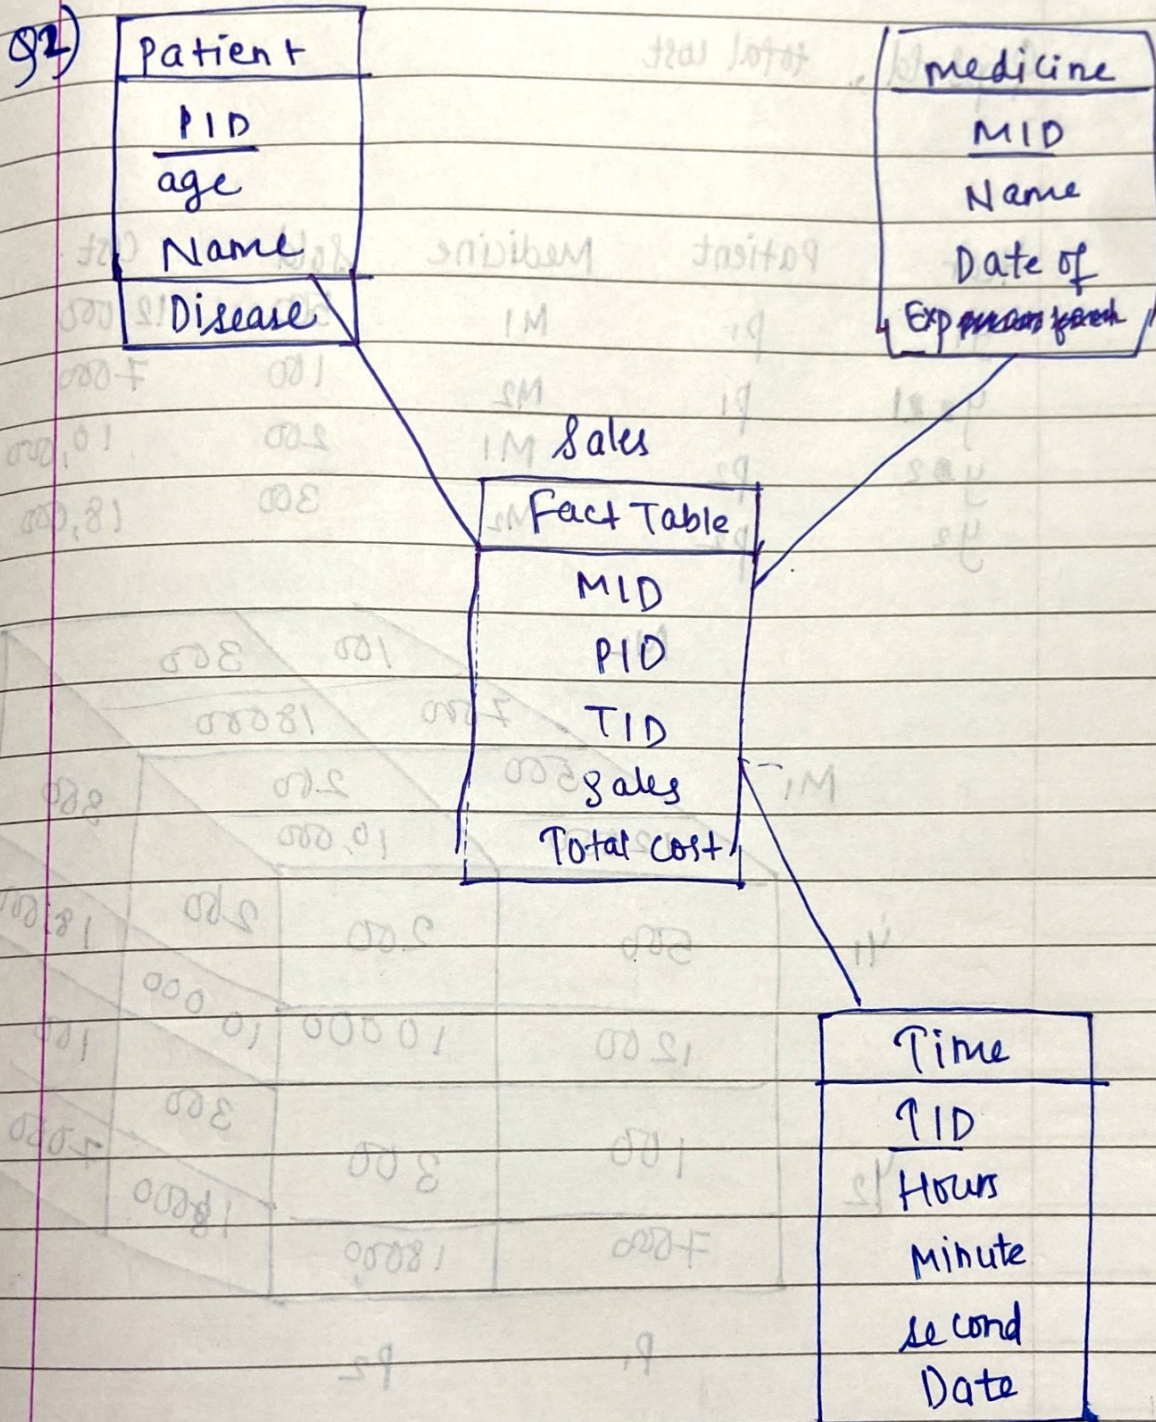 Q2)
Patient
PID
age
Name
Disease
medicine
MID
Name
Date of
Exp
Sales
Fact Table
MID
PID
TID
Sales
Total cost
Time
TID
Hours
Minute
second
Date